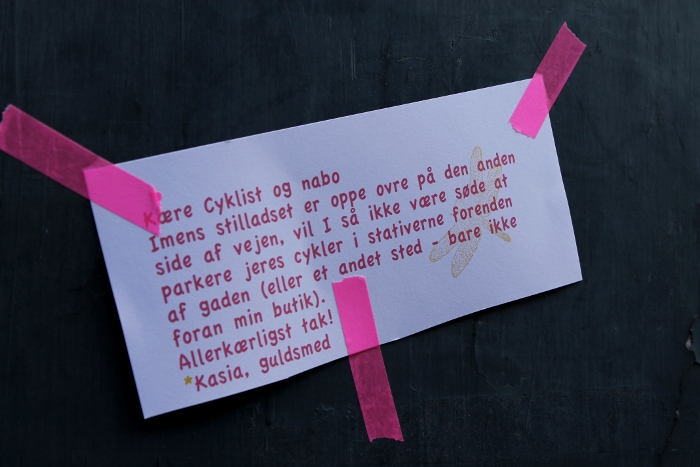 Kære Cyklist og nabo
Imens stilladset er oppe ovre på den anden
side af vejen, vil I så ikke være søde at
parkere jeres cykler i stativerne forenden
af gaden (eller et andet sted - bare ikke
foran min butik).
Allerkærligst tak!
*Kasia, guldsmed